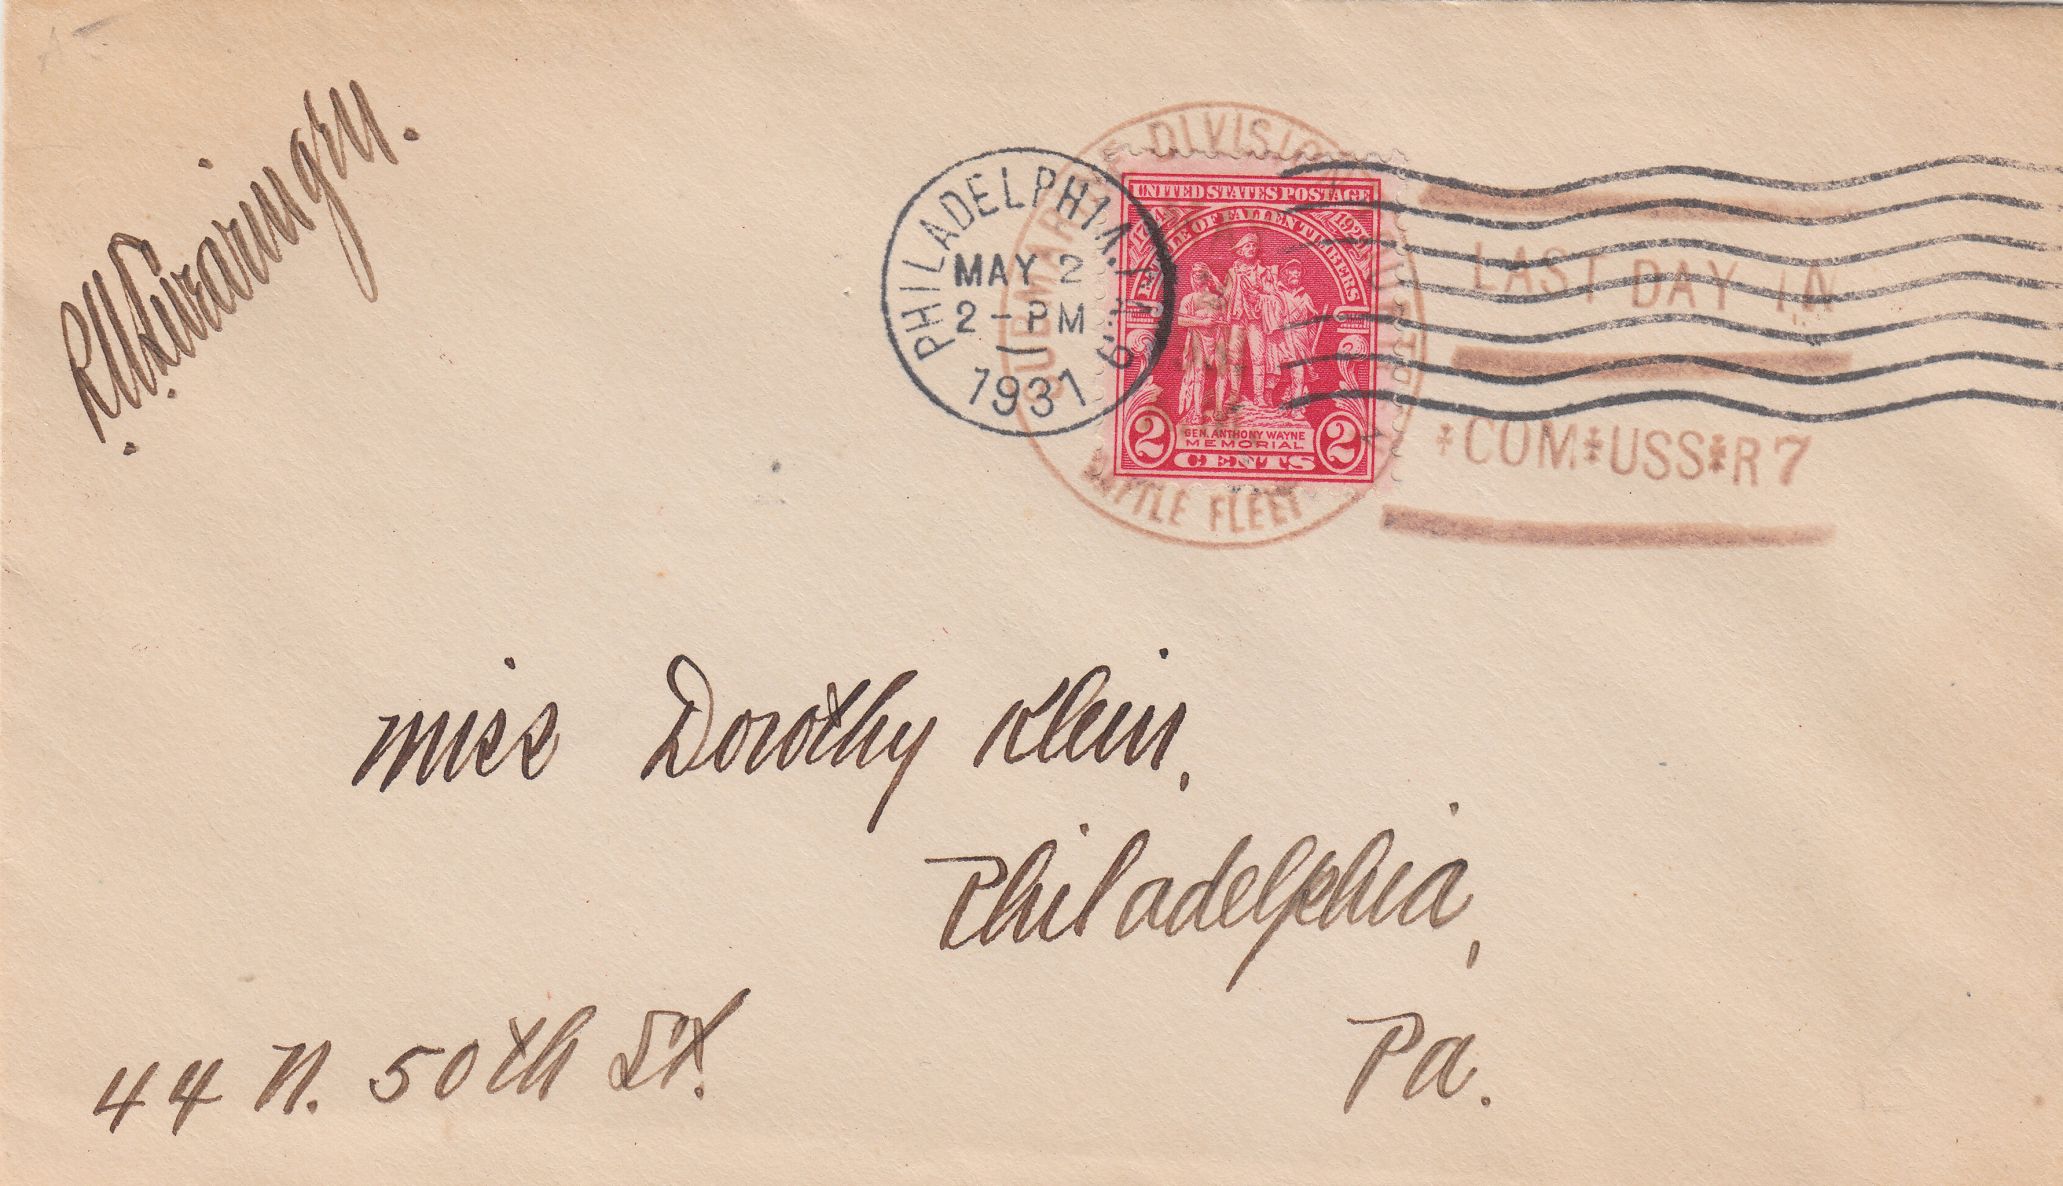 PHILADELPHIA, PA.
MAY 2
2-PM
1931
SUBMARINE DIVISION
BATTLE FLEET
UNITED STATES POSTAGE
BATTLE OF FALLEN TIMBERS
1794 1929
GEN. ANTHONY WAYNE
MEMORIAL
2 CENTS 2
LAST DAY IN
COM USS R7
Miss Dorothy Klein,
Philadelphia,
44 N. 50th St. Pa.